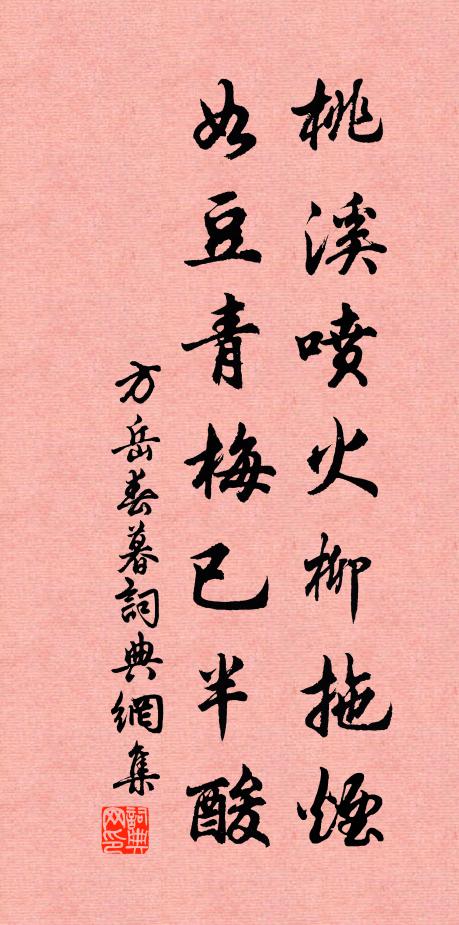 桃溪喷火柳拖烟
如豆青梅已半酸
方岳春暮詞典網集
詞典网印